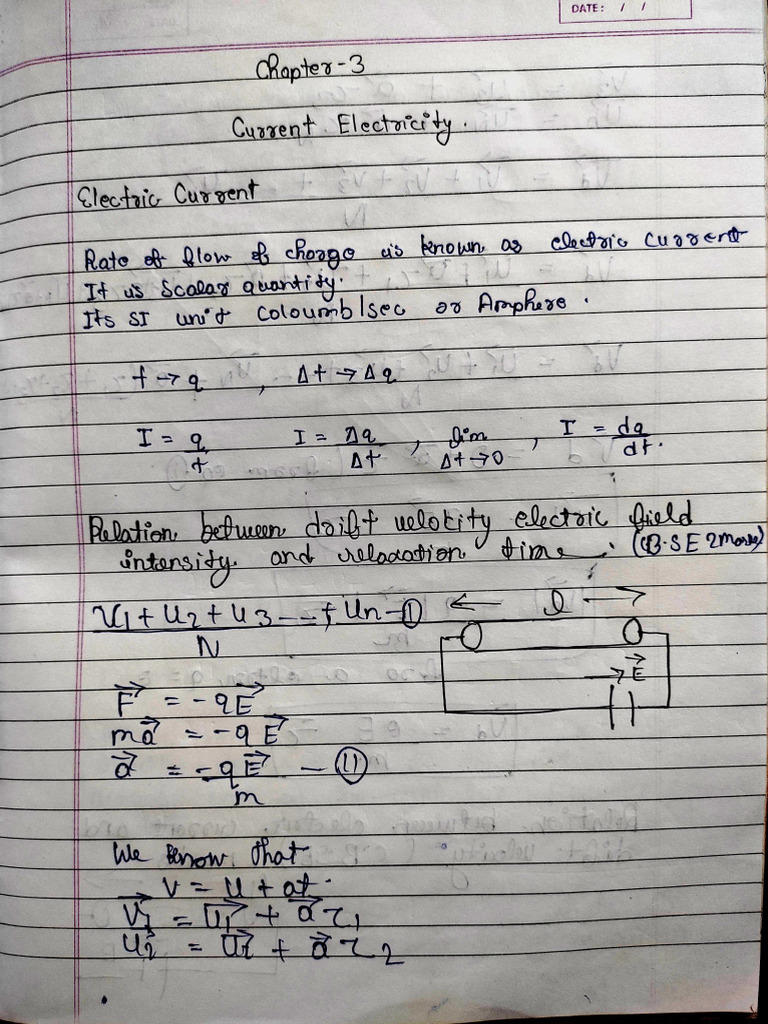 DATE: / /
Chapter-3
Current Electricity.
Electric Current
Rate of flow of charge is known as electric current
It is Scalar quantity.
Its SI unit Coloumb/sec or Amphere.
t → q , Δt → Δq
I = q/t I = Δq/Δt , lim Δt→0 , I = dq/dt.
Relation between drift velocity electric field
intensity and relaxation time. (CBSE 2 marks)
V1 + U2 + U3 ---- + Un - ① ← l →
N
F⃗ = -qE⃗ E⃗
ma⃗ = -qE⃗
a⃗ = -qE⃗/m - ⑪
We know that
V = U + at.
V⃗1 = U⃗1 + a⃗τ1
U⃗2 = U⃗2 + a⃗τ2